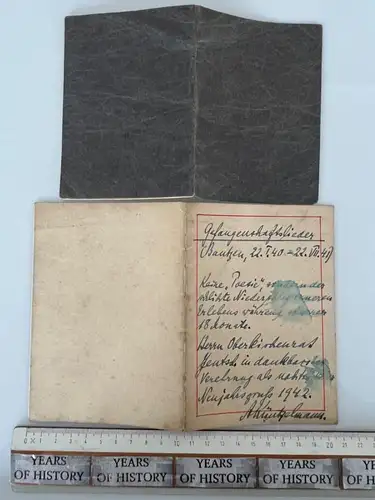 Gefangenschaftslieder
(Bautzen, 22. I. 40 – 22. VII. 41)
Keine "Poesie", sondern der
schlichte Niederschlag
Erlebens während
18 Monate.
Herrn Oberkirchenrat
in dankbarster
Verehrung als
Neujahrsgruß 1942.
YEARS
OF HISTORY
YEARS
OF HISTORY
YEARS
OF HISTORY
YEARS
OF HISTORY
YEARS
OF HISTORY